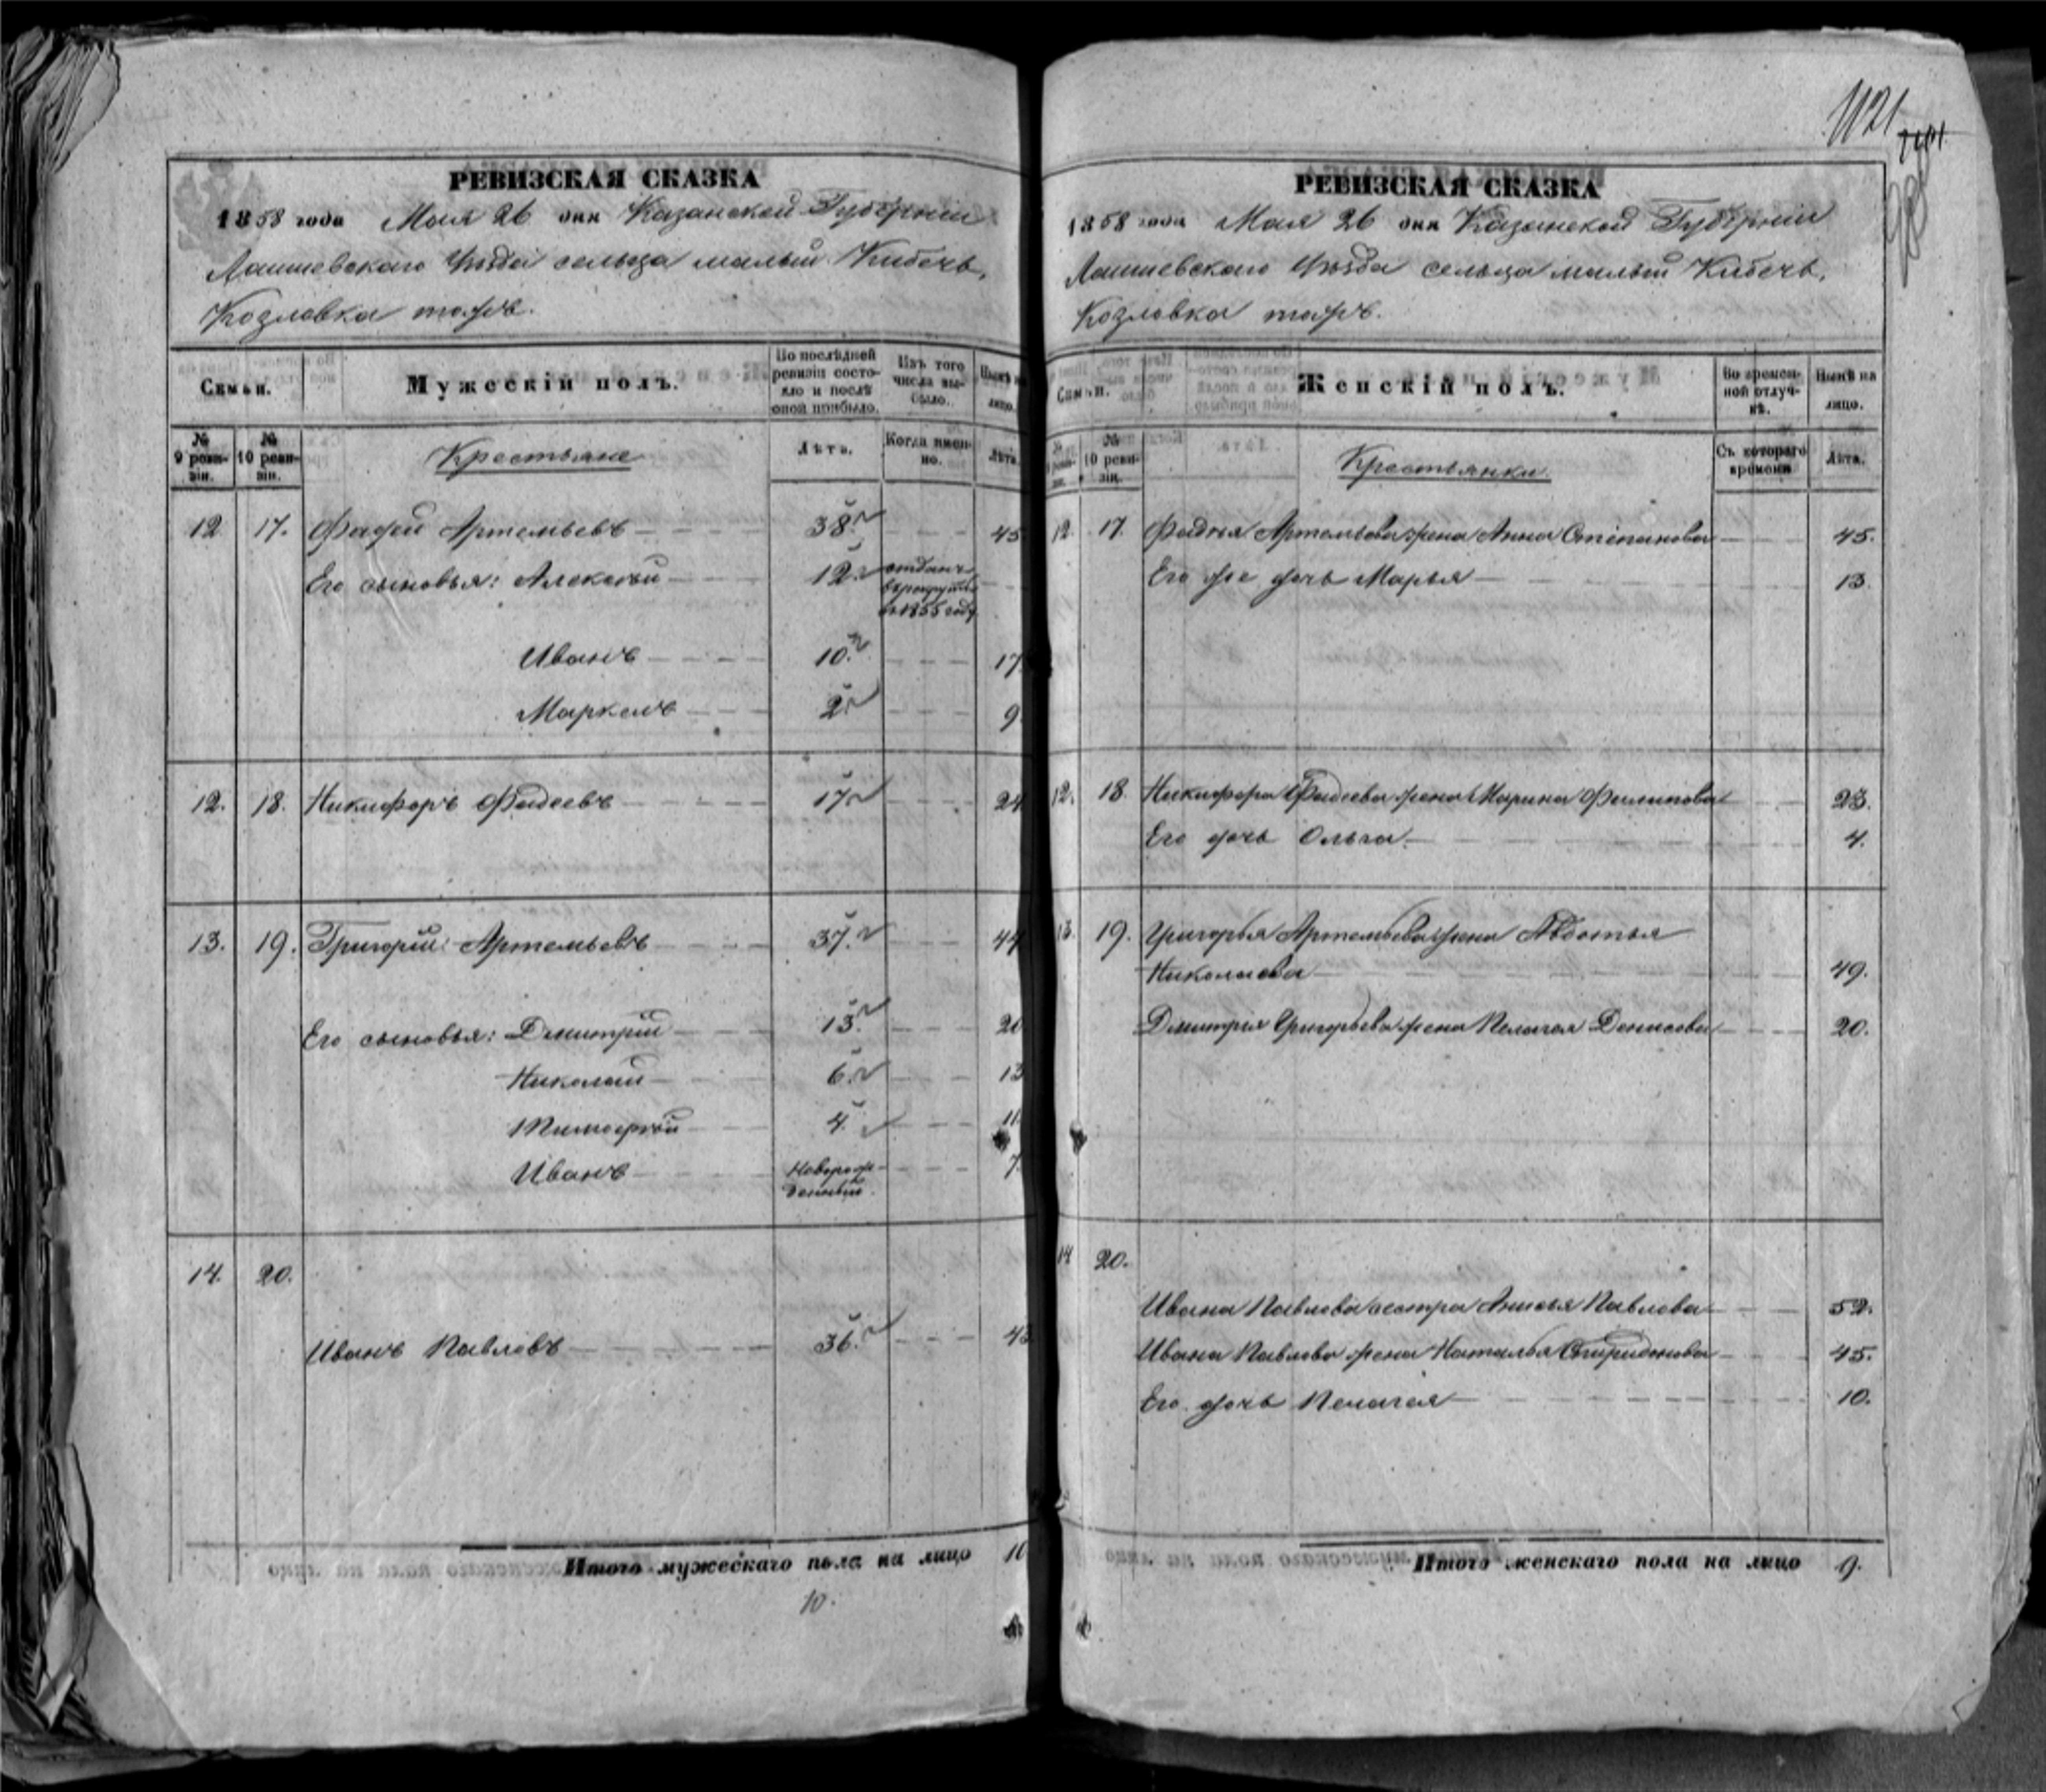 1121
РЕВИЗСКАЯ СКАЗКА
1858 года Мая 26 дня Казанской Губерніи
Лаишевскаго Уѣзда сельца малый Кибечь,
Козловка тожъ.
Семьи.
Мужескій полъ.
По послѣдней ревизіи состояло и послѣ оной прибыло.
Изъ того числа выбыло.
Нынѣ на лицо.
№ 9 ревизіи.
№ 10 ревизіи.
Крестьяне
Лѣта.
Когда именно.
Лѣта.
12 17. Фадей Артемьевъ 38. 45
Его сыновья: Алексѣй 12. отданъ в рекруты въ 1855 году
Иванъ 10. 17
Маркелъ 2. 9
12. 18. Никифоръ Фадеевъ 17 24
13. 19. Григорій Артемьевъ 37. 44
Его сыновья: Дмитрій 13. 20
Николай 6. 13
Тимофѣй 4. 11
Иванъ Новорожденный. 7
14. 20.
Иванъ Павловъ 36. 43
Итого мужескаго пола на лицо 10
10.
РЕВИЗСКАЯ СКАЗКА
1858 года Мая 26 дня Казанской Губерніи
Лаишевскаго Уѣзда сельца малый Кибечь,
Козловка тожъ.
Семьи.
Женскій полъ.
Во временной отлучкѣ.
Нынѣ на лицо.
№ 9 ревизіи.
№ 10 ревизіи.
Крестьянки.
Съ котораго времени
Лѣта.
12 17. Фадѣя Артемьева жена Анна Степанова 45.
Его же дочь Марья 13.
12. 18. Никифора Фадеева жена Марина Филипова 23.
Его дочь Ольга 4.
13. 19. Григорья Артемьева жена Авдотья
Николаева 49.
Дмитрія Григорьева жена Пелагея Денисова 20.
14 20.
Ивана Павлова сестра Анисья Павлова 52.
Ивана Павлова жена Наталья Спиридонова 45.
Его дочь Пелагея 10.
Итого женскаго пола на лицо 9.